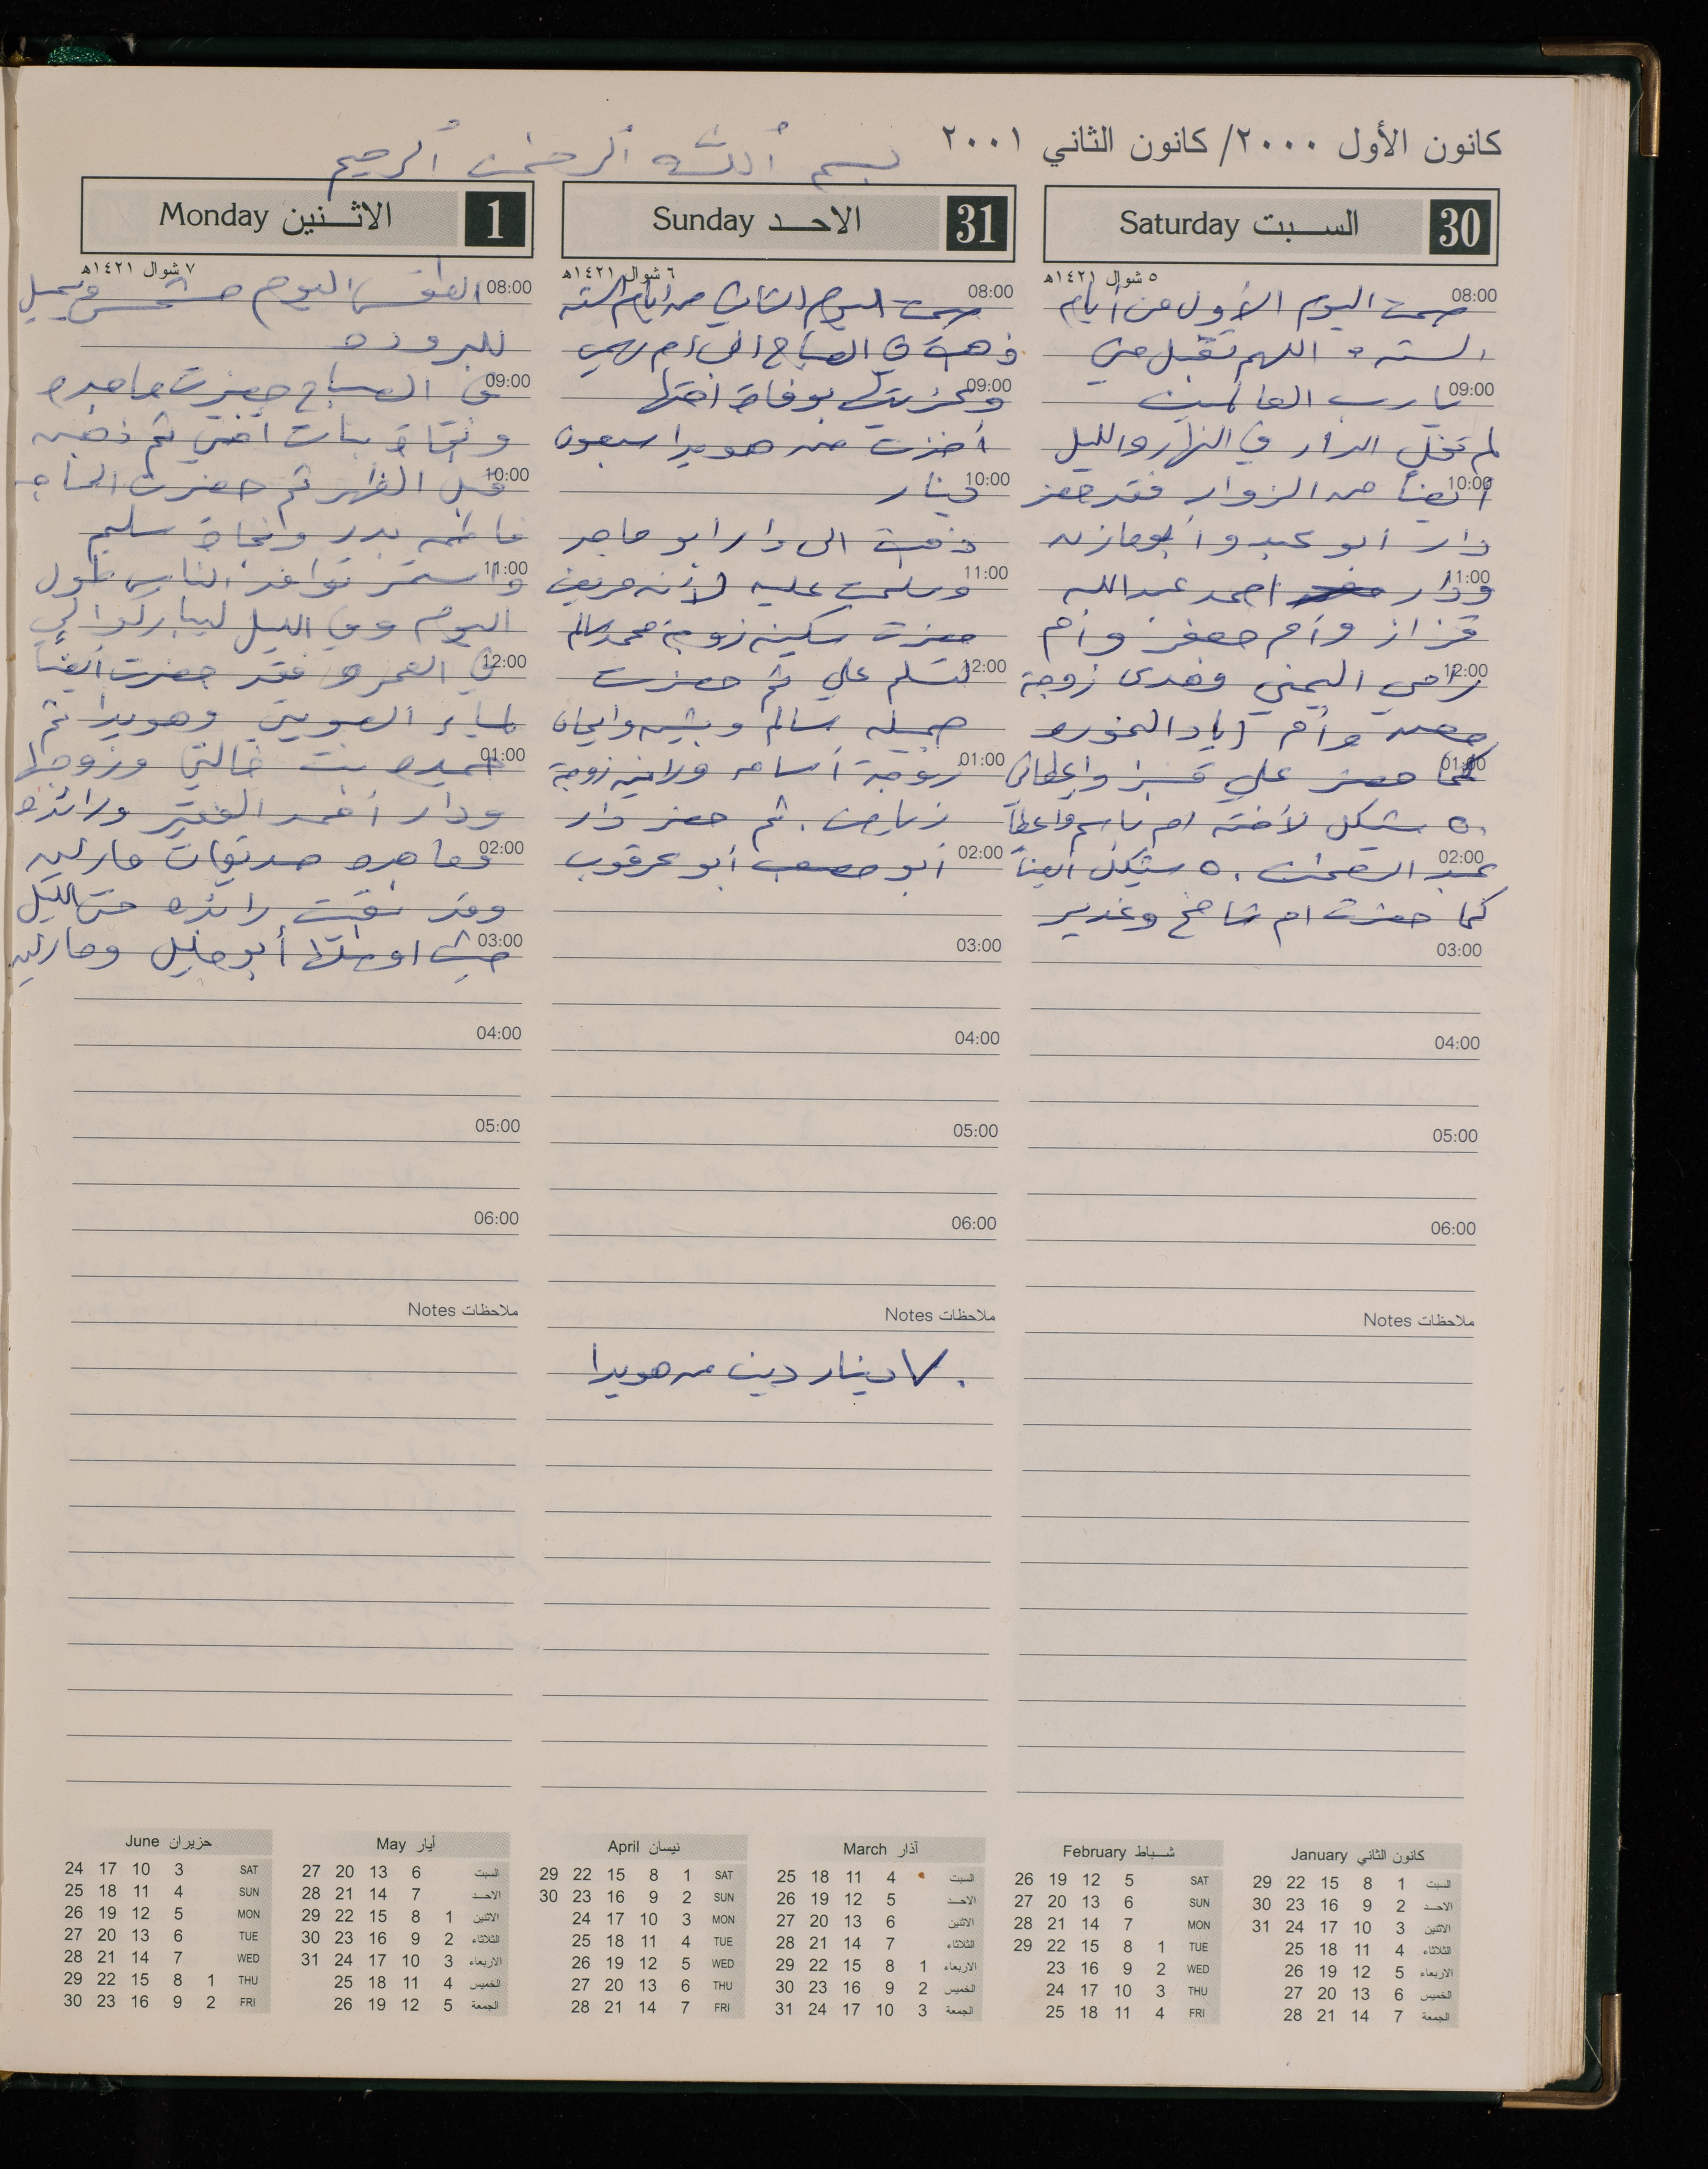 كانون الأول ٢٠٠٠/ كانون الثاني ٢٠٠١
بسم الله الرحمن الرحيم
30 السبت Saturday
٥ شوال ١٤٢١هـ
08:00
صمت اليوم الأول من أيام
الستة، اللهم تقبل مني
09:00
يا رب العالمين
لم تخل الدار في النهار والليل
10:00
أيضاً من الزوار فقد حضر
دار أبو عبد وأبو مازن
11:00
ودار احمد عبدالله
قزاز وأم جعفر وأم
12:00
رامي اليمني وهدى زوجة
وأم اياد الخوره
01:00
كما حضر علي واعطاني
٥٠ شيكل لأخته ام باسم واعطا
02:00
عبد الرحمن ٥٠ شيكل أيضاً
كما حضرت ام شامخ وغدير
03:00
04:00
05:00
06:00
ملاحظات Notes
31 الاحد Sunday
٦ شوال ١٤٢١هـ
08:00
صمت اليوم الثاني من أيام الستة
ذهبت في الصباح الى ام
09:00
وعزيتها بوفاة اختها
أخذت من هويدا سبعون
10:00
دينار
ذهبت الى دار ابو ماجد
11:00
وسلمت عليه لأنه مريض
حضرت سكينه زوجة محمد سالم
12:00
لتسلم علي ثم حضرت
جميله سالم وايمان
01:00
زوجة أسامه زوجة
ثم حضر دار
02:00
أبو مصعب أبو عرقوب
03:00
04:00
05:00
06:00
ملاحظات Notes
٧٠ دينار دين من هويدا
1 الاثنين Monday
٧ شوال ١٤٢١هـ
08:00
الطقس اليوم مشمس ويميل
للبروده
09:00
في الصباح حضرت ماجده
ونجاة بنات اختي ثم ذهبن
10:00
قبل الظهر ثم حضرت الحاجه
فاطمه بدر ونجاة سليم
11:00
واستمر توافد الناس طول
اليوم وفي الليل ليباركوا لي
12:00
في العمره فقد حضرت أيضاً
لمياء وهويدا ثم
01:00
بنت خالتي وزوجها
ودار أحمد الفقير ورائده
02:00
وماجده صديقات مارلين
وقد بقيت رائده حتى الليل
03:00
حيث اوصلها أبو خليل ومارلين
04:00
05:00
06:00
ملاحظات Notes
كانون الثاني January
السبت 1 8 15 22 29
الاحد 2 9 16 23 30
الاثنين 3 10 17 24 31
الثلاثاء 4 11 18 25
الاربعاء 5 12 19 26
الخميس 6 13 20 27
الجمعة 7 14 21 28
شباط February
SAT 5 12 19 26
SUN 6 13 20 27
MON 7 14 21 28
TUE 1 8 15 22 29
WED 2 9 16 23
THU 3 10 17 24
FRI 4 11 18 25
آذار March
السبت 4 11 18 25
الاحد 5 12 19 26
الاثنين 6 13 20 27
الثلاثاء 7 14 21 28
الاربعاء 1 8 15 22 29
الخميس 2 9 16 23 30
الجمعة 3 10 17 24 31
نيسان April
SAT 1 8 15 22 29
SUN 2 9 16 23 30
MON 3 10 17 24
TUE 4 11 18 25
WED 5 12 19 26
THU 6 13 20 27
FRI 7 14 21 28
أيار May
السبت 6 13 20 27
الاحد 7 14 21 28
الاثنين 1 8 15 22 29
الثلاثاء 2 9 16 23 30
الاربعاء 3 10 17 24 31
الخميس 4 11 18 25
الجمعة 5 12 19 26
حزيران June
SAT 3 10 17 24
SUN 4 11 18 25
MON 5 12 19 26
TUE 6 13 20 27
WED 7 14 21 28
THU 1 8 15 22 29
FRI 2 9 16 23 30